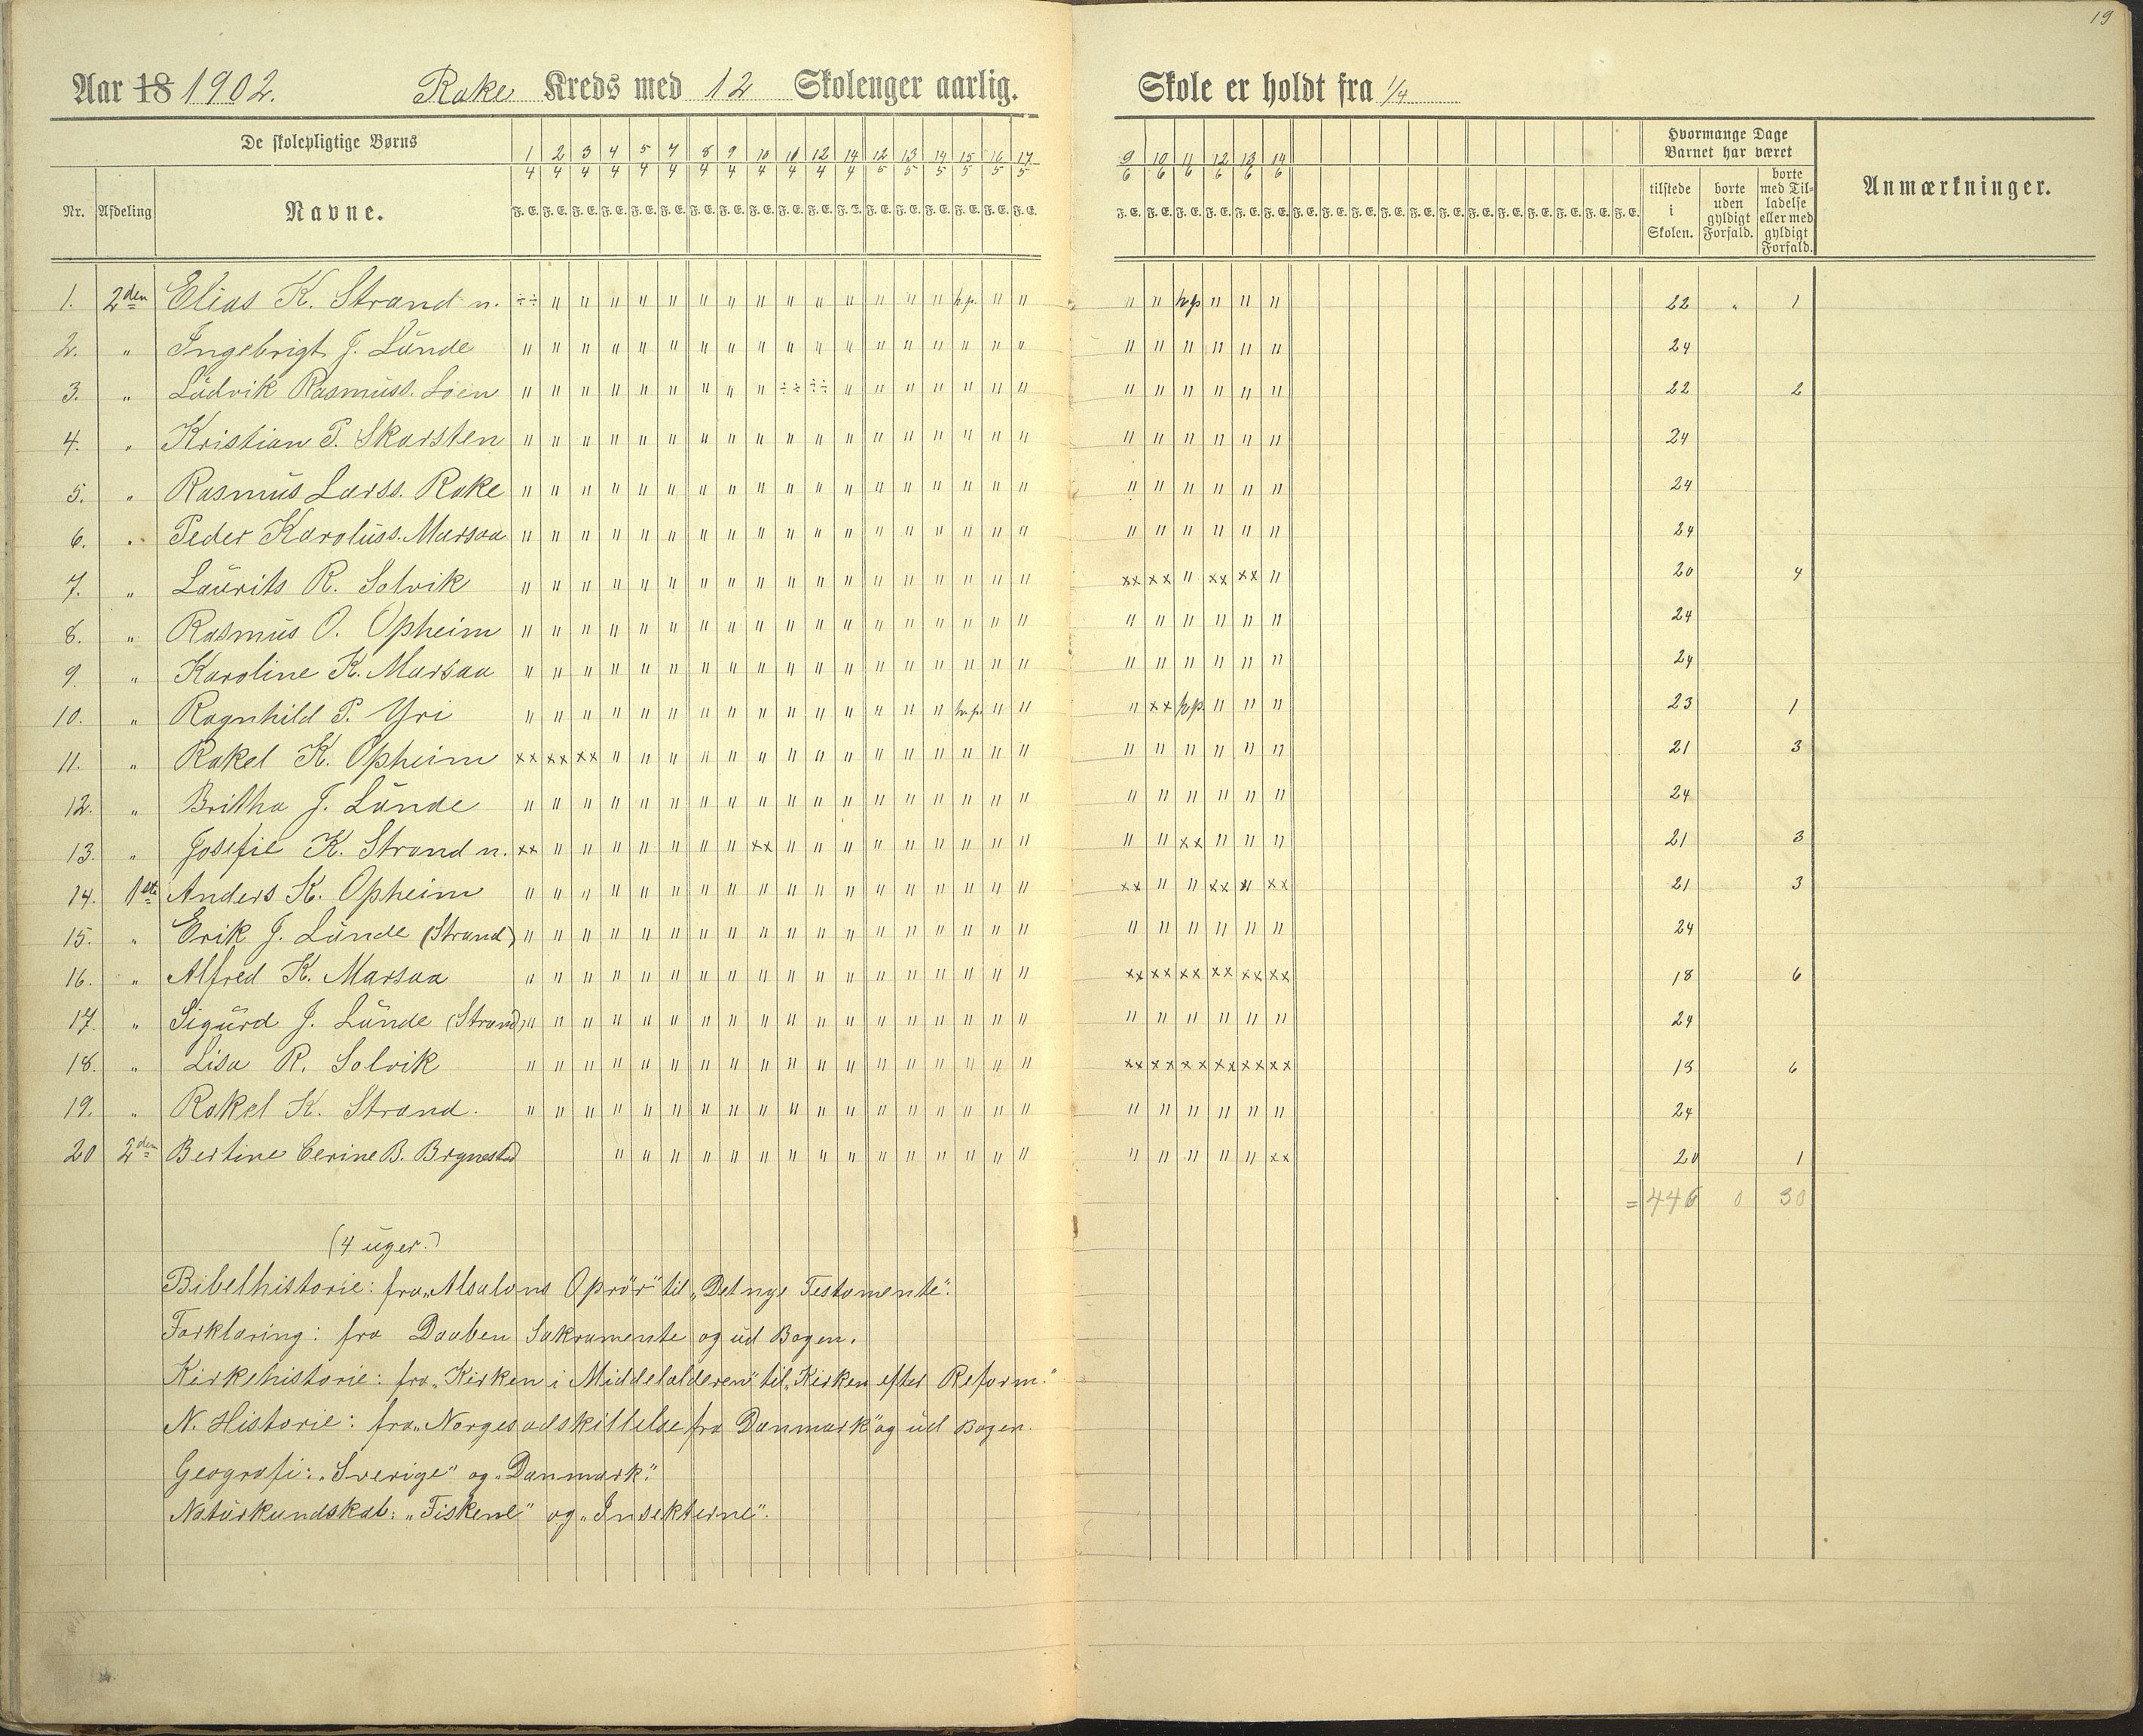 19
Aar 18 1902. Rake Kreds med 12 Skoleuger aarlig. Skole er holdt fra 1/4
De skolepligtige Børns
Nr. Afdeling Navne.
1/4 2/4 3/4 4/4 5/4 7/4 8/4 9/4 10/4 11/4 12/4 14/4 12/5 13/5 14/5 15/5 16/5 17/5 9/6 10/6 11/6 12/6 13/6 14/6
F. E. F. E. F. E. F. E. F. E. F. E. F. E. F. E. F. E. F. E. F. E. F. E. F. E. F. E. F. E. F. E. F. E. F. E.
Hvormange Dage Barnet har været
tilstede i Skolen. borte uden gyldigt Forfald. borte med Tilladelse eller med gyldigt Forfald.
Anmærkninger.
1. 2den Elias K. Strand n. ÷÷ " " " " " " " " " " " " " " h.p. " " " " h.p. " " " 22 " 1
2. " Ingebrigt J. Lunde " " " " " " " " " " " " " " " " " " " " " " " " 24
3. " Ludvik Rasmuss. Loen " " " " " " " " " ÷÷ ÷÷ " " " " " " " " " " " " " 22 2
4. " Kristian P. Skarsten " " " " " " " " " " " " " " " " " " " " " " " " 24
5. " Rasmus Larss. Rake " " " " " " " " " " " " " " " " " " " " " " " " 24
6. " Peder Karoluss. Marsaa " " " " " " " " " " " " " " " " " " " " " " " " 24
7. " Laurits R. Solvik " " " " " " " " " " " " " " " " " " xx xx " xx xx " 20 4
8. " Rasmus O. Opheim " " " " " " " " " " " " " " " " " " " " " " " " 24
9. " Karoline K. Marsaa " " " " " " " " " " " " " " " " " " " " " " " " 24
10. " Ragnhild P. Yri " " " " " " " " " " " " " " " h.p. " " " xx h.p. " " " 23 1
11. " Rakel K. Opheim xx xx xx " " " " " " " " " " " " " " " " " " " " " 21 3
12. " Britha J. Lunde " " " " " " " " " " " " " " " " " " " " " " " " 24
13. " Josefie K. Strand n. xx " " " " " " " xx " " " " " " " " " " " xx " " " 21 3
14. 1ste Anders K. Opheim " " " " " " " " " " " " " " " " " " xx " " xx " xx 21 3
15. " Erik J. Lunde (Strand) " " " " " " " " " " " " " " " " " " " " " " " " 24
16. " Alfred K. Marsaa " " " " " " " " " " " " " " " " " " xx xx xx xx xx xx 18 6
17. " Sigurd J. Lunde (Strand) " " " " " " " " " " " " " " " " " " " " " " " " 24
18. " Lisa R. Solvik " " " " " " " " " " " " " " " " " " xx xx xx xx xx xx 18 6
19. " Rakel K. Strand. " " " " " " " " " " " " " " " " " " " " " " " " 24
20 2den Bertine Cerine B. Brynestad " " " " " " " " " " " " " " " " " " " " xx 20 1
= 446 0 30
(4 uger.)
Bibelhistorie: fra „Absalons Oprör" til „Det nye Testamente".
Forklaring: fra Daaben Sakramente og ud Bogen.
Kirkehistorie: fra „Kirken i Middelalderen" til „Kirken efter Reform."
N. Historie: fra „Norges adskillelse fra Danmark" og ud Bogen.
Geografi: „Sverige" og „Danmark".
Naturkundskab: „Fiskene" og „Insekterne".